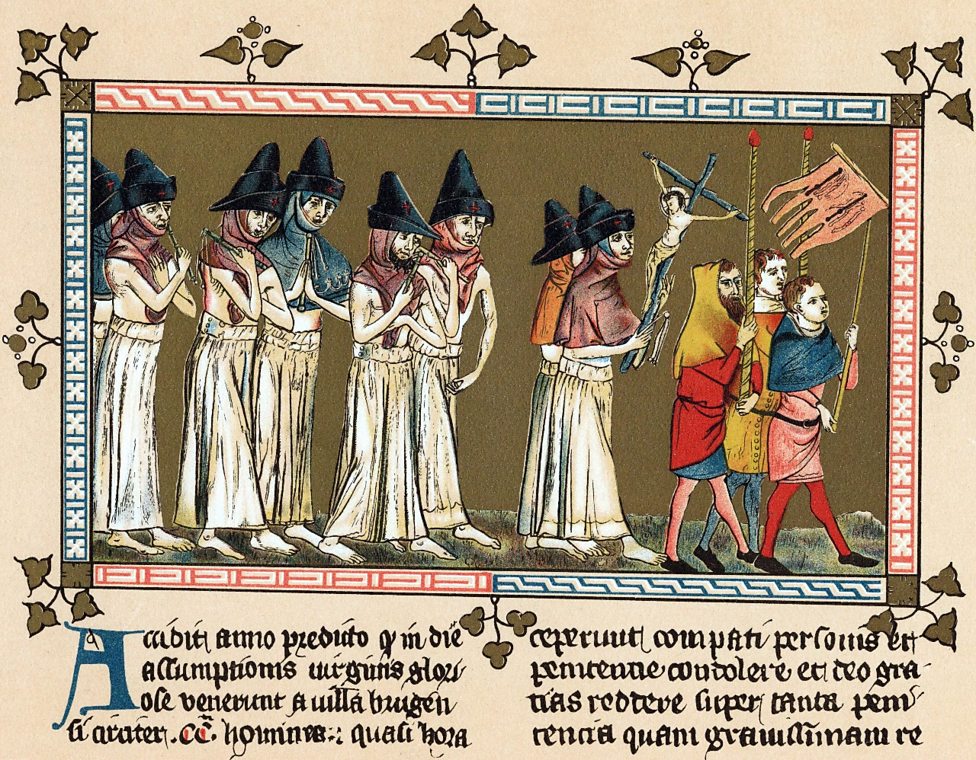 Accidit anno predicto q̄ in die
assumptionis uirginis glori
ose venerunt a uilla brugen
si circiter .CC. homines: quasi hora
ceperunt compati personis et
penitentie condolere et deo gra-
tias reddere super tanta peni
tencia quam grauissimam re